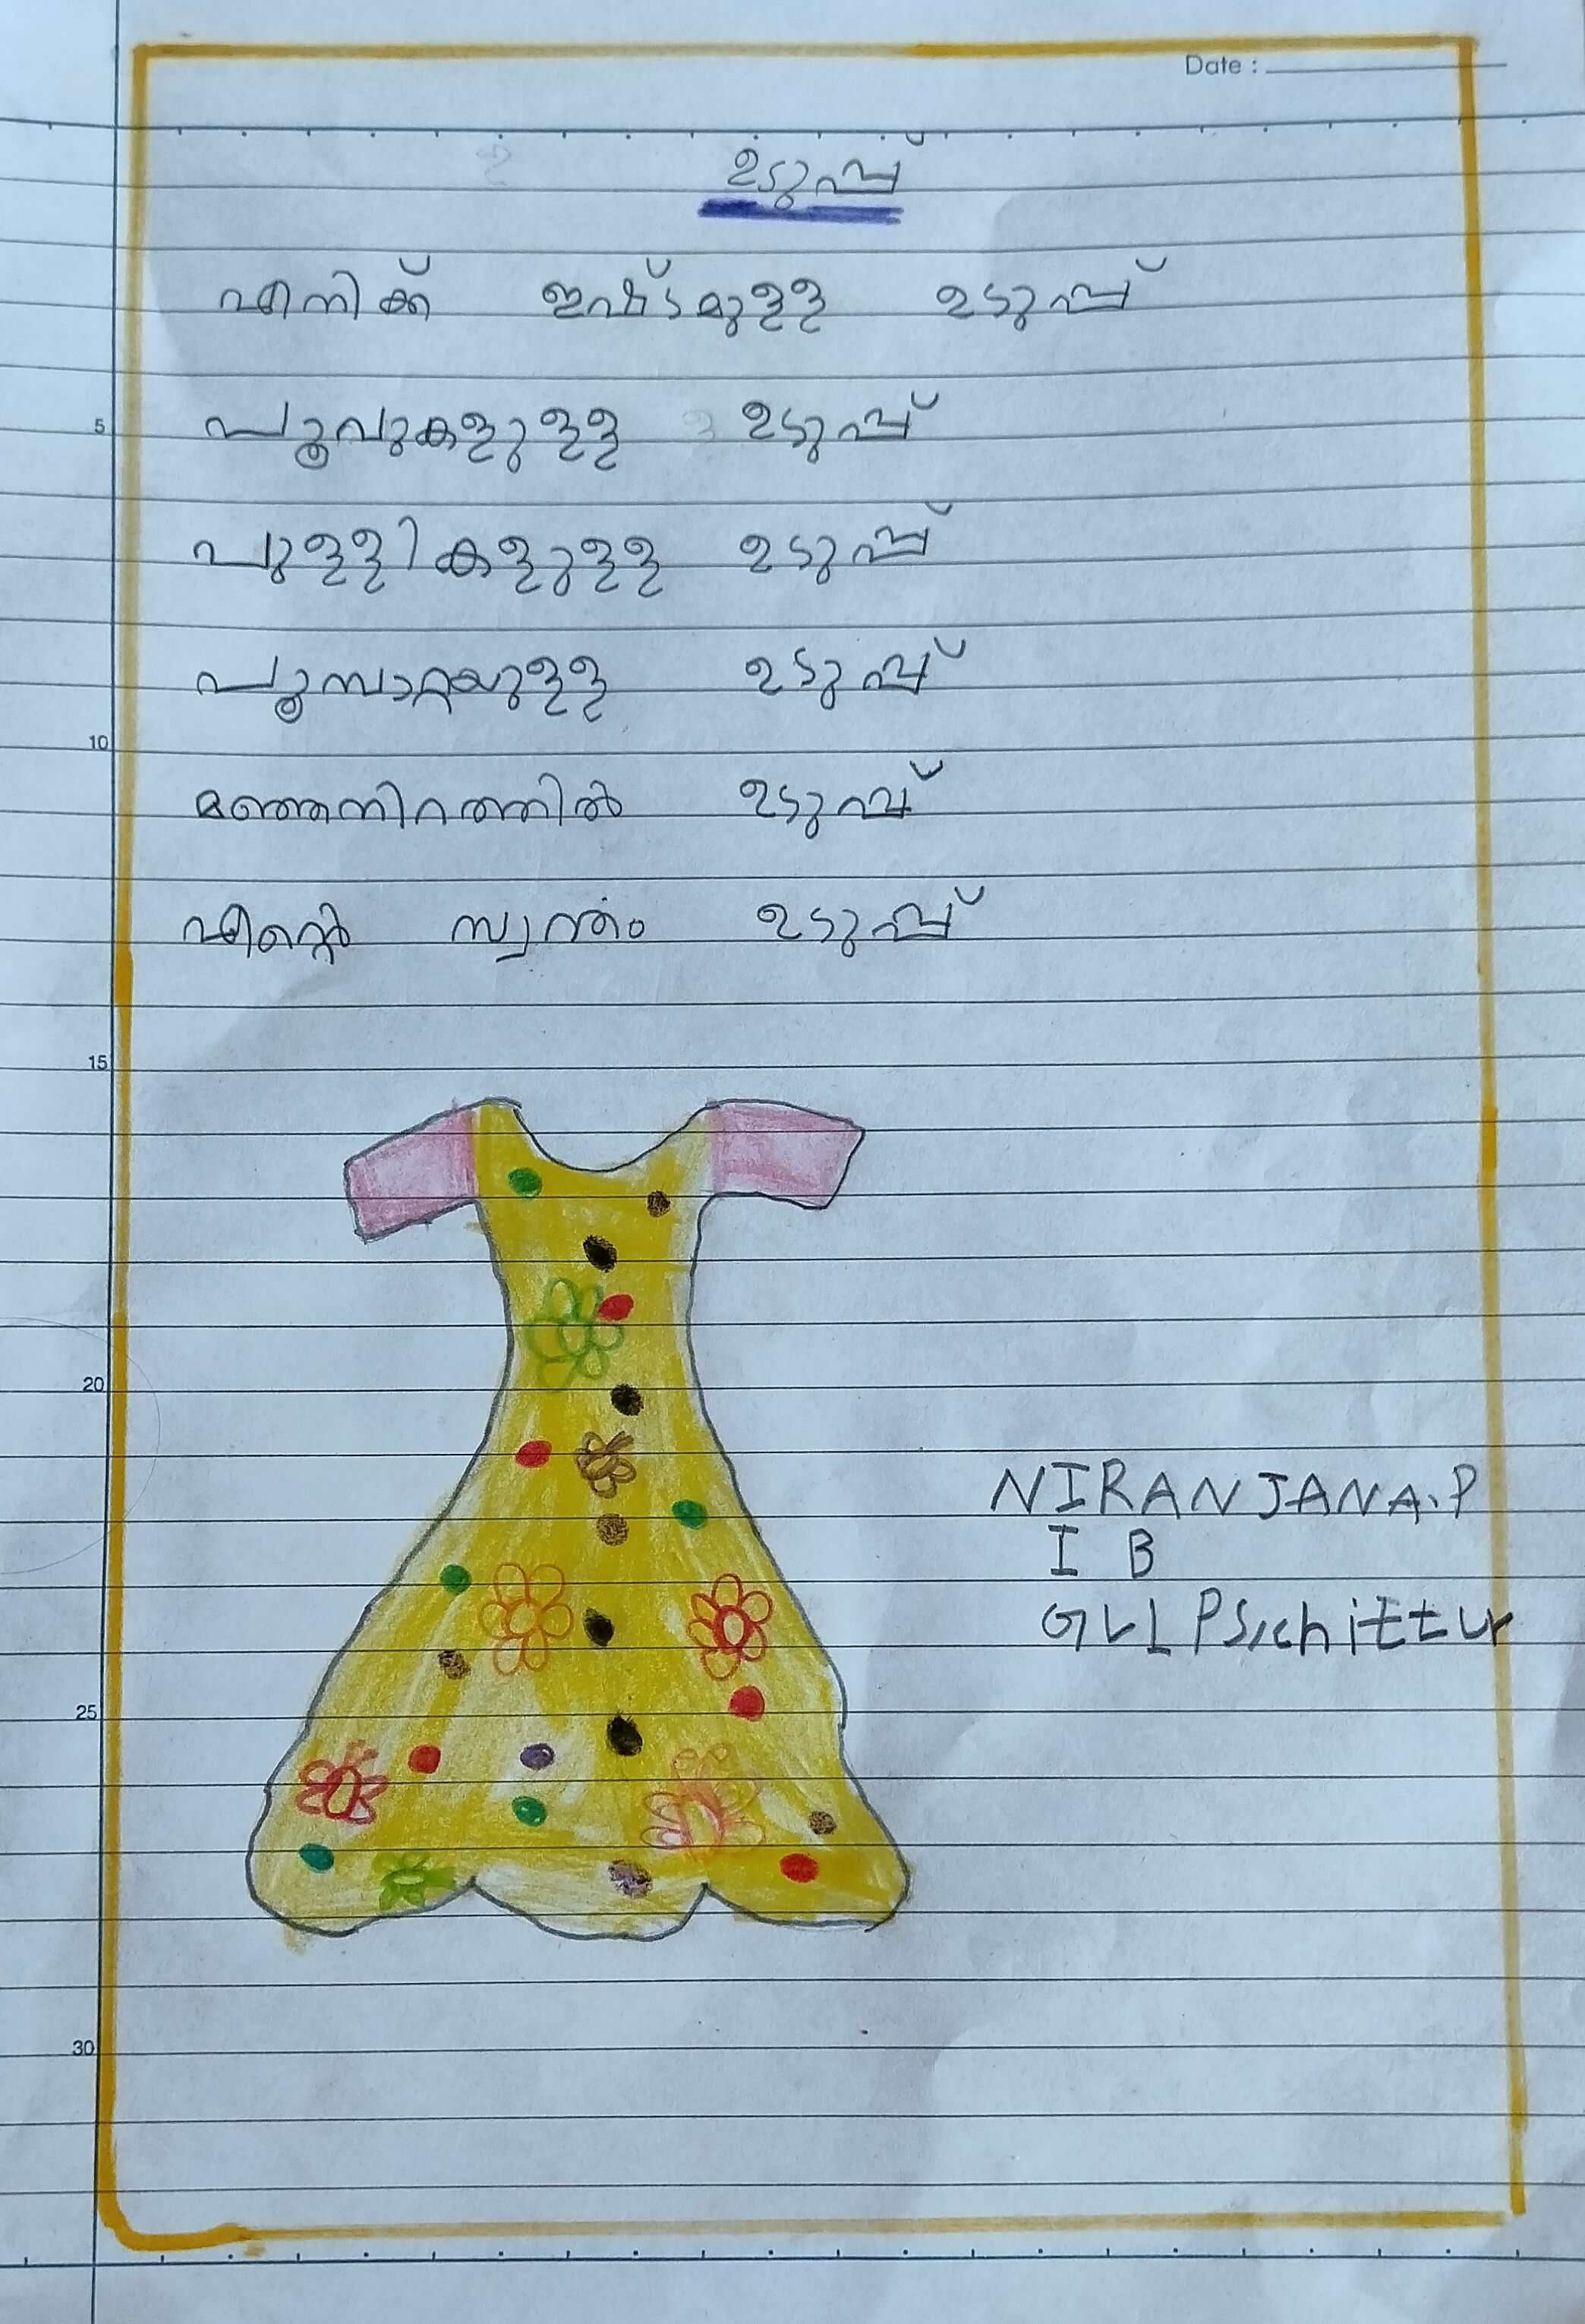 Date :
ഉടുപ്പ്
എനിക്ക് ഇഷ്ടമുള്ള ഉടുപ്പ്
5 പൂവുകളുള്ള ഉടുപ്പ്
പുള്ളികളുള്ള ഉടുപ്പ്
പൂമ്പാറ്റയുള്ള ഉടുപ്പ്
10
മഞ്ഞനിറത്തിൽ ഉടുപ്പ്
എന്റെ സ്വന്തം ഉടുപ്പ്
15
20
NIRANJANA.P
I B
GVLPS,chittur
25
30